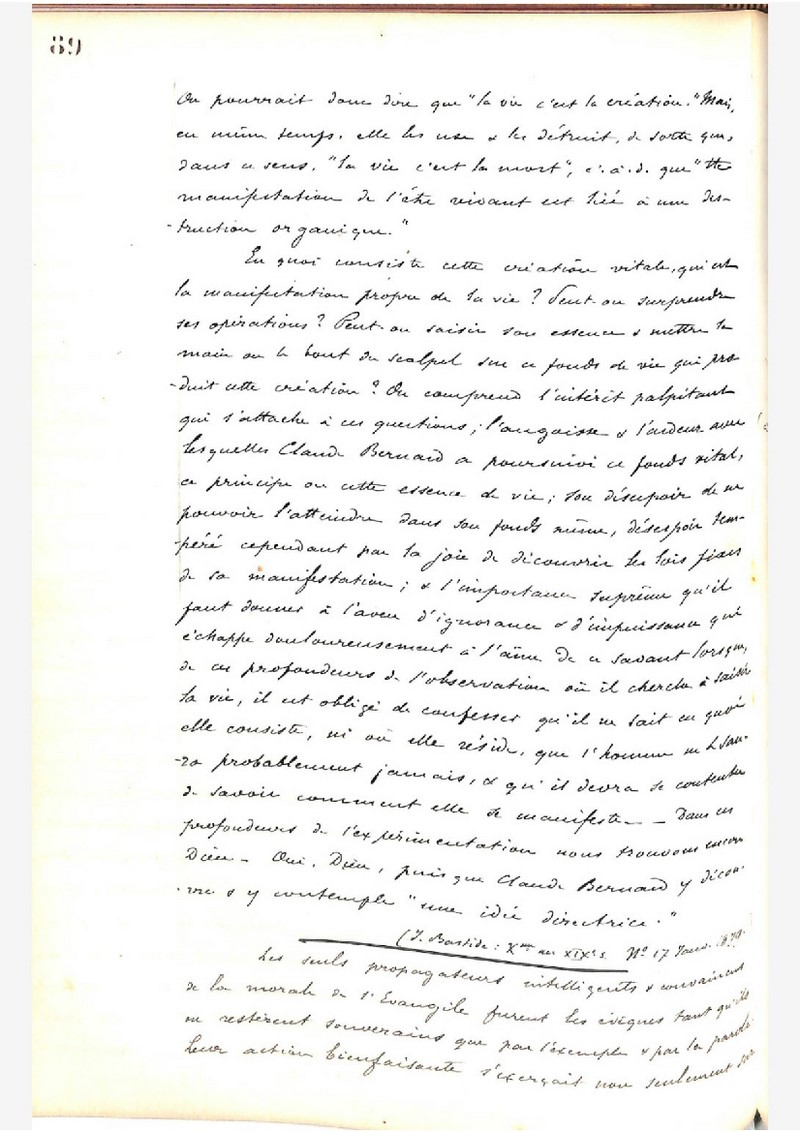 89
On pourrait donc dire que "la vie c'est la création." Mais,
en même temps, elle les use & les détruit, de sorte que,
dans ce sens, "la vie c'est la mort", c.à.d. que "tte
manifestation de l'être vivant est liée à une des-
-truction organique."
En quoi consiste cette création vitale, qui est
la manifestation propre de la vie ? Peut-on surprendre
ses opérations ? Peut-on saisir son essence & mettre la
main ou le bout du scalpel sur ce fonds de vie qui pro-
-duit cette création ? On comprend l'intérêt palpitant
qui s'attache à ces questions ; l'angoisse & l'ardeur avec
lesquelles Claude Bernard a poursuivi ce fonds vital,
ce principe ou cette essence de vie ; son désespoir de ne
pouvoir l'atteindre dans son fonds même, désespoir tem-
-péré cependant par la joie de découvrir les lois fixes
de sa manifestation ; & l'importance suprême qu'il
faut donner à l'aveu d'ignorance & d'impuissance qui
échappe douloureusement à l'âme de ce savant lorsque,
de ces profondeurs de l'observation où il cherche à saisir
la vie, il est obligé de confesser qu'il ne sait en quoi
elle consiste, ni où elle réside, que l'homme ne le sau-
-ra probablement jamais, & qu'il devra se contenter
de savoir comment elle se manifeste. — Dans ces
profondeurs de l'expérimentation nous trouvons encore
Dieu. Oui, Dieu, puisque Claude Bernard y décou-
-vre & y contemple "une idée directrice."
(J. Bastide : Xme au XIXe s. No 17 Janv. 1879.)
Les seuls propagateurs intelligents & convaincus
de la morale de l'Evangile furent les évêques tant qu'ils
ne restèrent souverains que par l'exemple & par la parole.
Leur action bienfaisante s'exerçait non seulement sur